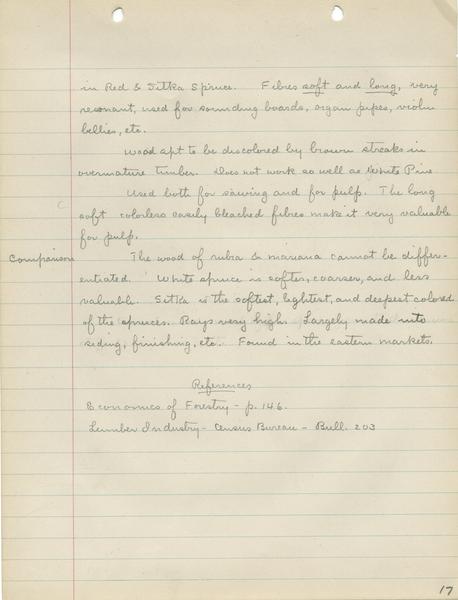 in Red & Sitka Spruce. Fibres soft and long, very
resonant, used for sounding boards, organ pipes, violin
bellies, etc.
Wood apt to be discolored by brown streaks in
overmature timber. Does not work so well as White Pine
Used both for sawing and for pulp. The long
soft colorless easily bleached fibres make it very valuable
for pulp.
Comparison The wood of rubra & mariana cannot be differ-
entiated. White spruce is softer, coarser, and less
valuable. Sitka is the softest, lightest, and deepest colored
of the spruces. Rays very high. Largely made into
siding, finishing, etc. Found in the eastern markets.
References
Economics of Forestry - p. 146.
Lumber Industry - Census Bureau - Bull. 203
17